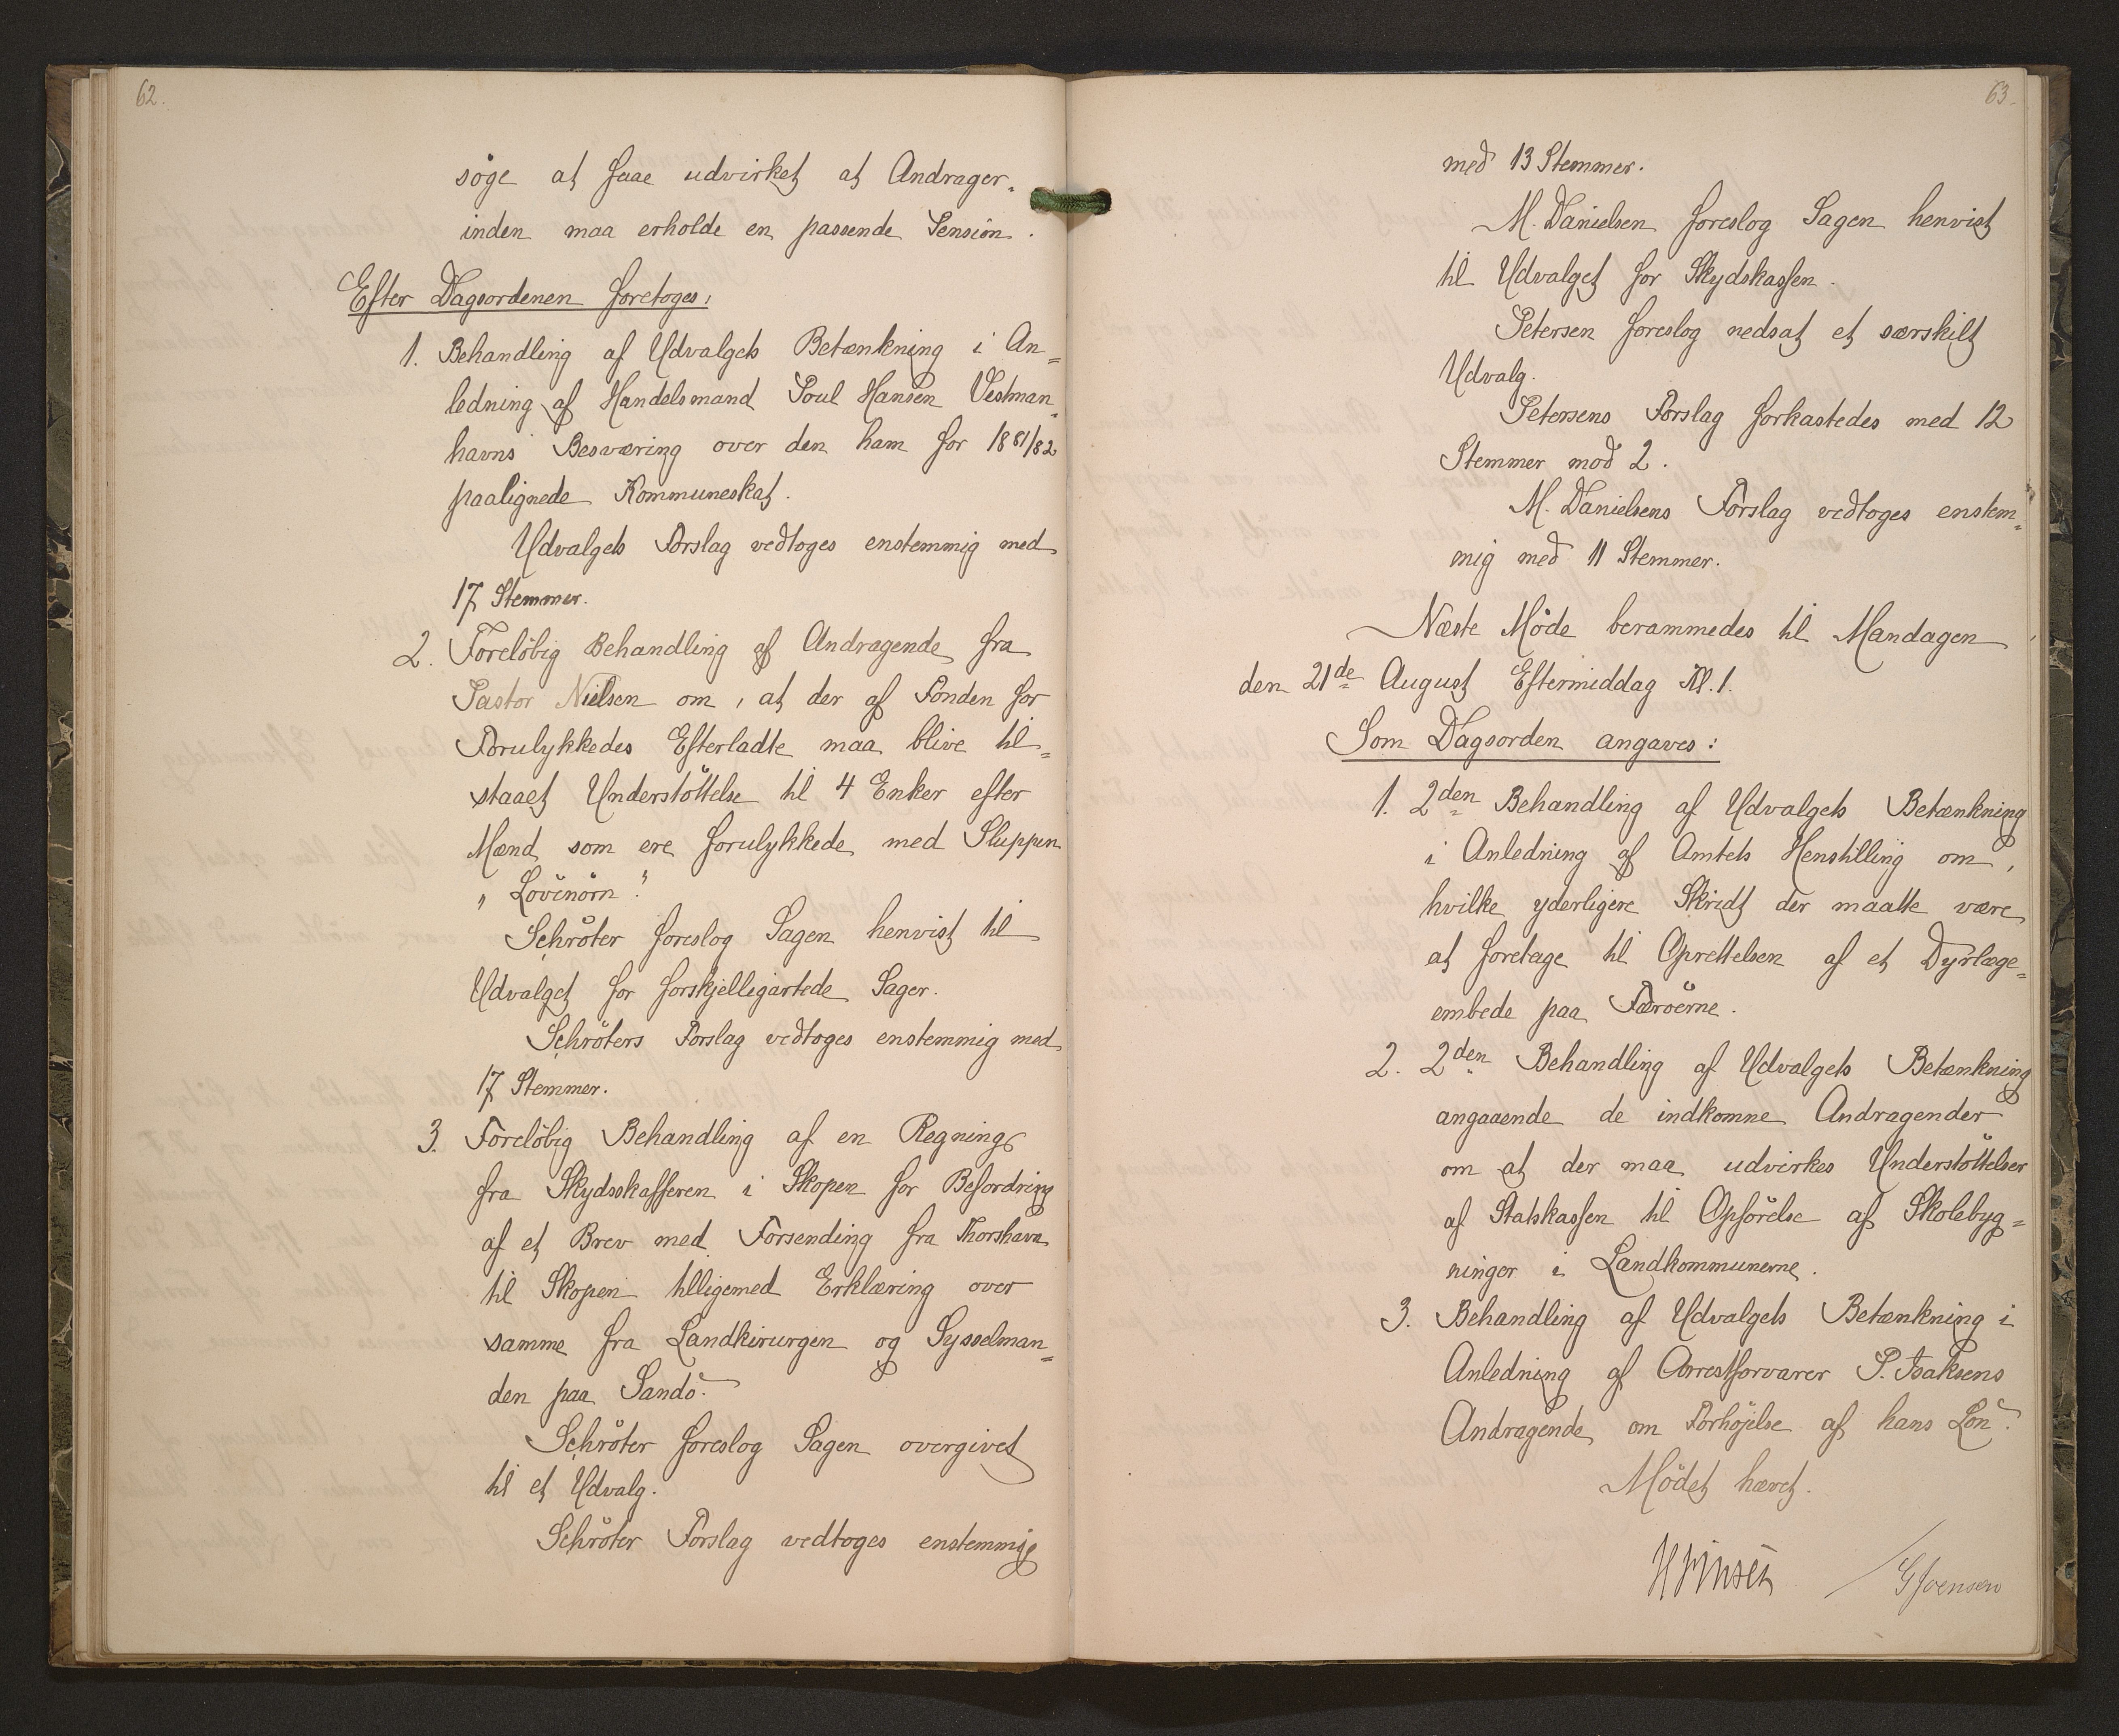 62.
söge at faae udvirket at Andrager-
inden maa erholde en passende Pension.
Efter Dagsordenen foretoges:
1. Behandling af Udvalgets Betænkning i An=
ledning af Handelsmand Poul Hansen Vestman=
havns Besværing over den ham for 1881/82
paalignede Kommuneskat.
Udvalgets Forslag vedtoges enstemmig med
17 Stemmer.
2. Forelöbig Behandling af Andragende fra
Pastor Nielsen om, at der af Fonden for
Forulykkedes Efterladte maa blive til=
staaet Understöttelse til 4 Enker efter
Mænd som ere forulykkede med Sluppen
„Lövenörn".
Schröter foreslog Sagen henvist til
Udvalget for forskjelligartede Sager.
Schröters Forslag vedtoges enstemmig med
17 Stemmer.
3. Forelöbig Behandling af en Regning
fra Skydsskafferen i Skopen for Befordring
af et Brev med Forsending fra Thorshavn
til Skopen tilligemed Erklæring over
samme fra Landkirurgen og Sysselman=
den paa Sandö.
Schröter foreslog Sagen overgivet
til et Udvalg.
Schröter Forslag vedtoges enstemmig
63.
med 13 Stemmer.
M. Danielsen foreslog Sagen henvist
til Udvalget for Skydskassen.
Petersen foreslog nedsat et særskilt
Udvalg.
Petersens Forslag forkastedes med 12
Stemmer mod 2.
M. Danielsens Forslag vedtoges enstem=
mig med 11 Stemmer.
Næste Möde berammedes til Mandagen
den 21de August Eftermiddag Kl. 1.
Som Dagsorden angaves:
1. 2den Behandling af Udvalgets Betænkning
i Anledning af Amtets Henstilling om,
hvilke yderligere Skridt der maatte være
at foretage til Oprettelsen af et Dyrlæge=
embede paa Færöerne.
2. 2den Behandling af Udvalgets Betænkning
angaaende de indkomne Andragender
om at der maa udvirkes Understöttelser
af Statskassen til Opförelse af Skolebyg=
ninger i Landkommunerne.
3. Behandling af Udvalgets Betænkning i
Anledning af Arrestforvarer P. Isaksens
Andragende om Forhöjelse af hans Lön.
Mödet hævet.
HFinsen